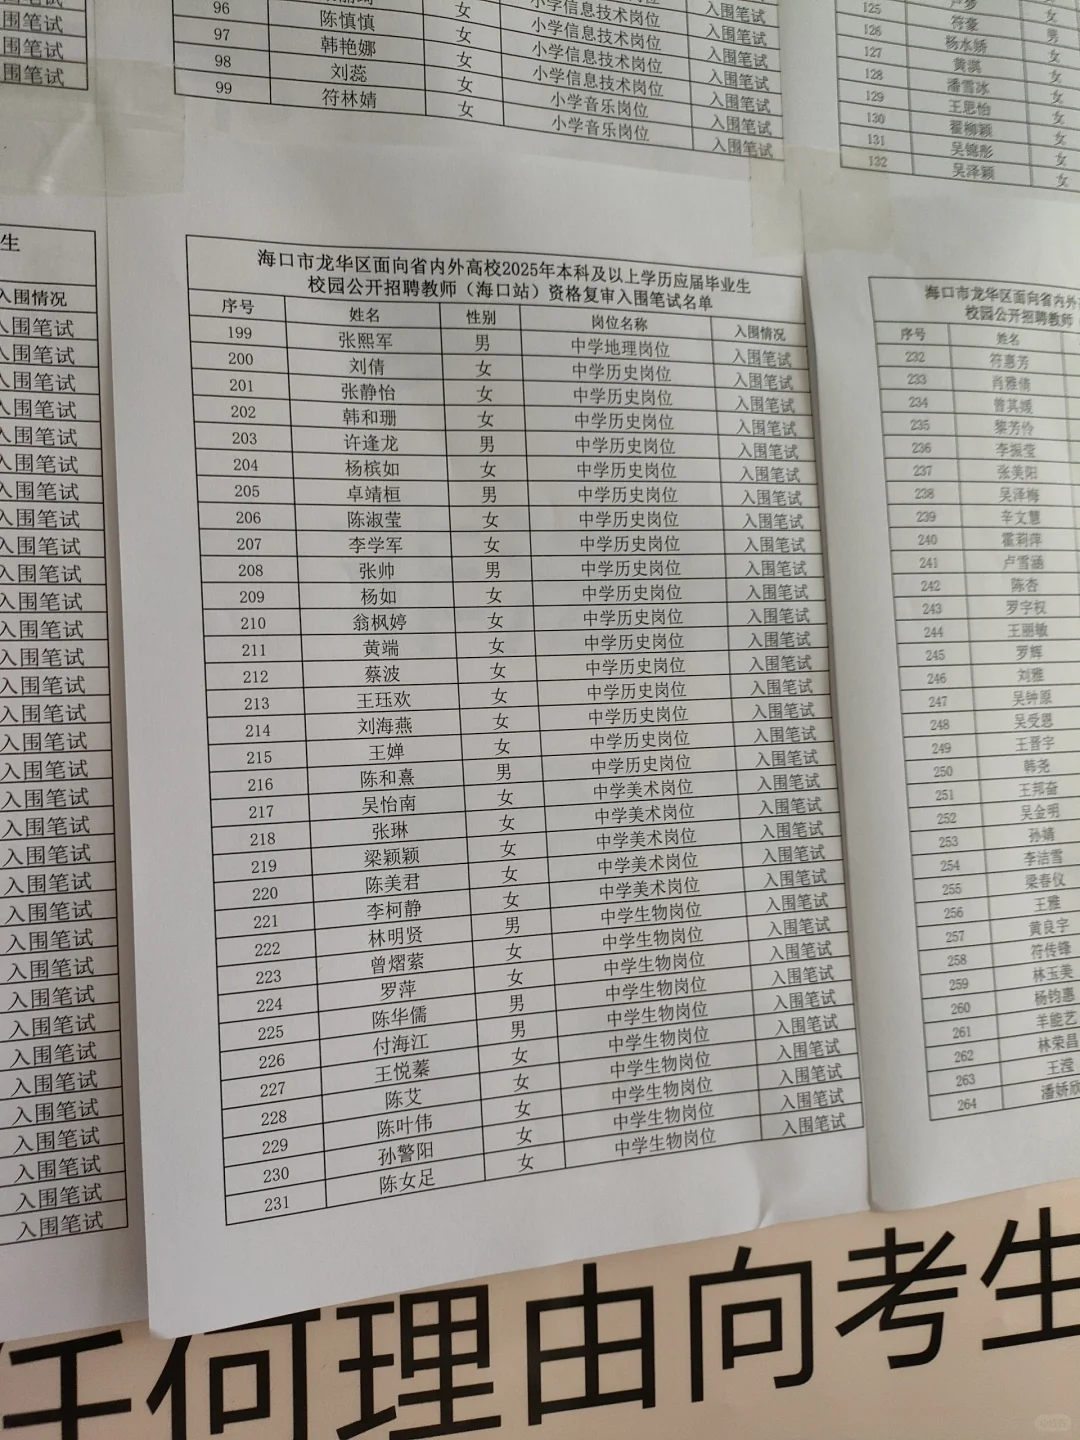 入围笔试
入围笔试
入围笔试
96 陈慎慎 女 小学信息技术岗位 入围笔试
97 韩艳娜 女 小学信息技术岗位 入围笔试
98 刘蕊 女 小学音乐岗位 入围笔试
99 符林婧 女 小学音乐岗位 入围笔试
125 符豪 男
126 杨水娇 女
127 黄淇 女
128 潘雪冰 女
129 王思怡 女
130 翟柳颖 女
131 吴锦彤 女
132 吴泽颖 女
生
入围情况
入围笔试
入围笔试
入围笔试
入围笔试
入围笔试
入围笔试
入围笔试
入围笔试
入围笔试
入围笔试
入围笔试
入围笔试
入围笔试
入围笔试
入围笔试
入围笔试
入围笔试
入围笔试
入围笔试
入围笔试
入围笔试
入围笔试
入围笔试
入围笔试
入围笔试
入围笔试
入围笔试
入围笔试
入围笔试
入围笔试
入围笔试
入围笔试
入围笔试
海口市龙华区面向省内外高校2025年本科及以上学历应届毕业生
校园公开招聘教师（海口站）资格复审入围笔试名单
序号 姓名 性别 岗位名称 入围情况
199 张熙军 男 中学地理岗位 入围笔试
200 刘倩 女 中学历史岗位 入围笔试
201 张静怡 女 中学历史岗位 入围笔试
202 韩和珊 女 中学历史岗位 入围笔试
203 许逢龙 男 中学历史岗位 入围笔试
204 杨槟如 女 中学历史岗位 入围笔试
205 卓靖桓 男 中学历史岗位 入围笔试
206 陈淑莹 女 中学历史岗位 入围笔试
207 李学军 女 中学历史岗位 入围笔试
208 张帅 男 中学历史岗位 入围笔试
209 杨如 女 中学历史岗位 入围笔试
210 翁枫婷 女 中学历史岗位 入围笔试
211 黄端 女 中学历史岗位 入围笔试
212 蔡波 女 中学历史岗位 入围笔试
213 王珏欢 女 中学历史岗位 入围笔试
214 刘海燕 女 中学历史岗位 入围笔试
215 王婵 女 中学历史岗位 入围笔试
216 陈和熹 男 中学历史岗位 入围笔试
217 吴怡南 女 中学美术岗位 入围笔试
218 张琳 女 中学美术岗位 入围笔试
219 梁颖颖 女 中学美术岗位 入围笔试
220 陈美君 女 中学美术岗位 入围笔试
221 李柯静 女 中学美术岗位 入围笔试
222 林明贤 男 中学生物岗位 入围笔试
223 曾熠萦 女 中学生物岗位 入围笔试
224 罗萍 女 中学生物岗位 入围笔试
225 陈华儒 男 中学生物岗位 入围笔试
226 付海江 男 中学生物岗位 入围笔试
227 王悦蓁 女 中学生物岗位 入围笔试
228 陈艾 女 中学生物岗位 入围笔试
229 陈叶伟 女 中学生物岗位 入围笔试
230 孙警阳 女 中学生物岗位 入围笔试
231 陈女足 女 中学生物岗位 入围笔试
海口市龙华区面向省内外
校园公开招聘教师
序号 姓名
232 符惠芳
233 肖雅倩
234 曾其媛
235 黎芳伶
236 李振莹
237 张美阳
238 吴泽梅
239 辛文慧
240 霍莉萍
241 卢雪涵
242 陈杏
243 罗宇权
244 王丽敏
245 罗辉
246 刘雅
247 吴钟原
248 吴受恩
249 王晋宇
250 韩尧
251 王邦奋
252 吴金明
253 孙婧
254 李洁雪
255 梁春仪
256 王雅
257 黄良宇
258 符传锋
259 林玉美
260 杨钧惠
261 羊能艺
262 林荣昌
263 王滢
264 潘娇欣
任何理由向考生